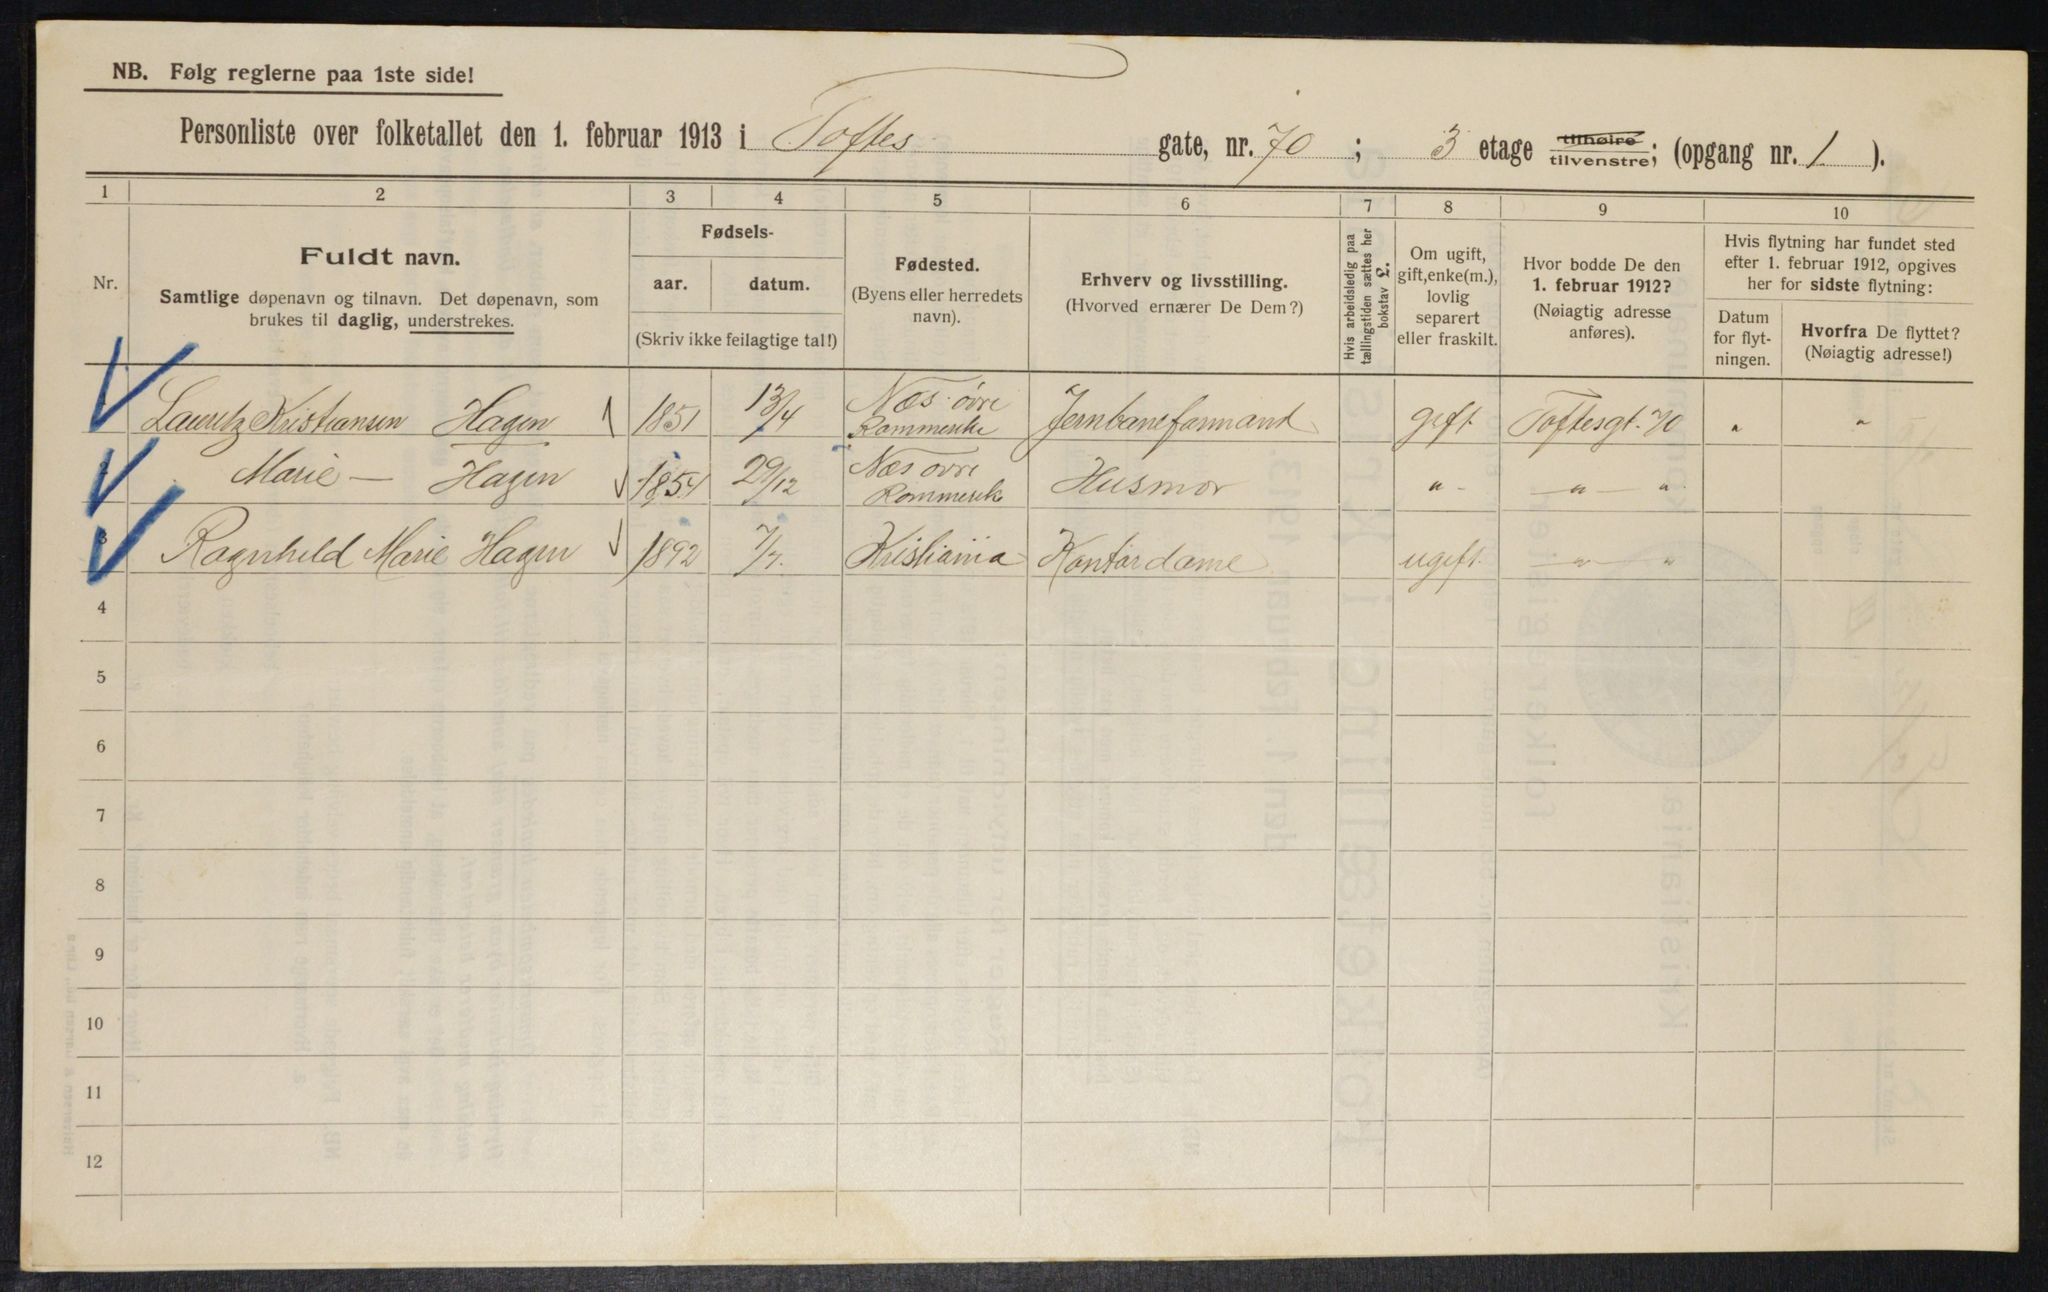 NB. Følg reglerne paa 1ste side!
Personliste over folketallet den 1. februar 1913 i Toftes gate, nr. 70 ; 3 etage tilhøire tilvenstre; (opgang nr. 1 ).
1 2 3 4 5 6 7 8 9 10
Nr.
Fuldt navn.
Samtlige døpenavn og tilnavn. Det døpenavn, som
brukes til daglig, understrekes.
Fødsels-
aar. datum.
(Skriv ikke feilagtige tal!)
Fødested.
(Byens eller herredets
navn).
Erhverv og livsstilling.
(Hvorved ernærer De Dem?)
Hvis arbeidsledig paa
tællingstiden sættes her
bokstav L.
Om ugift,
gift, enke(m.),
lovlig
separert
eller fraskilt.
Hvor bodde De den
1. februar 1912?
(Nøiagtig adresse
anføres).
Hvis flytning har fundet sted
efter 1. februar 1912, opgives
her for sidste flytning:
Datum
for flyt-
ningen.
Hvorfra De flyttet?
(Nøiagtig adresse!)
Lauritz Kristiansen Hagen 1851 13/4 Næs øvre Romerike Jernbaneformand gift Toftesgt. 70 " "
2 Marie — Hagen 1854 29/12 Næs øvre Romerike Husmor " - — " — "
3 Ragnhild Marie Hagen 1892 7/7. Kristiania Kontordame ugift — " — "
4
5
6
7
8
9
10
11
12